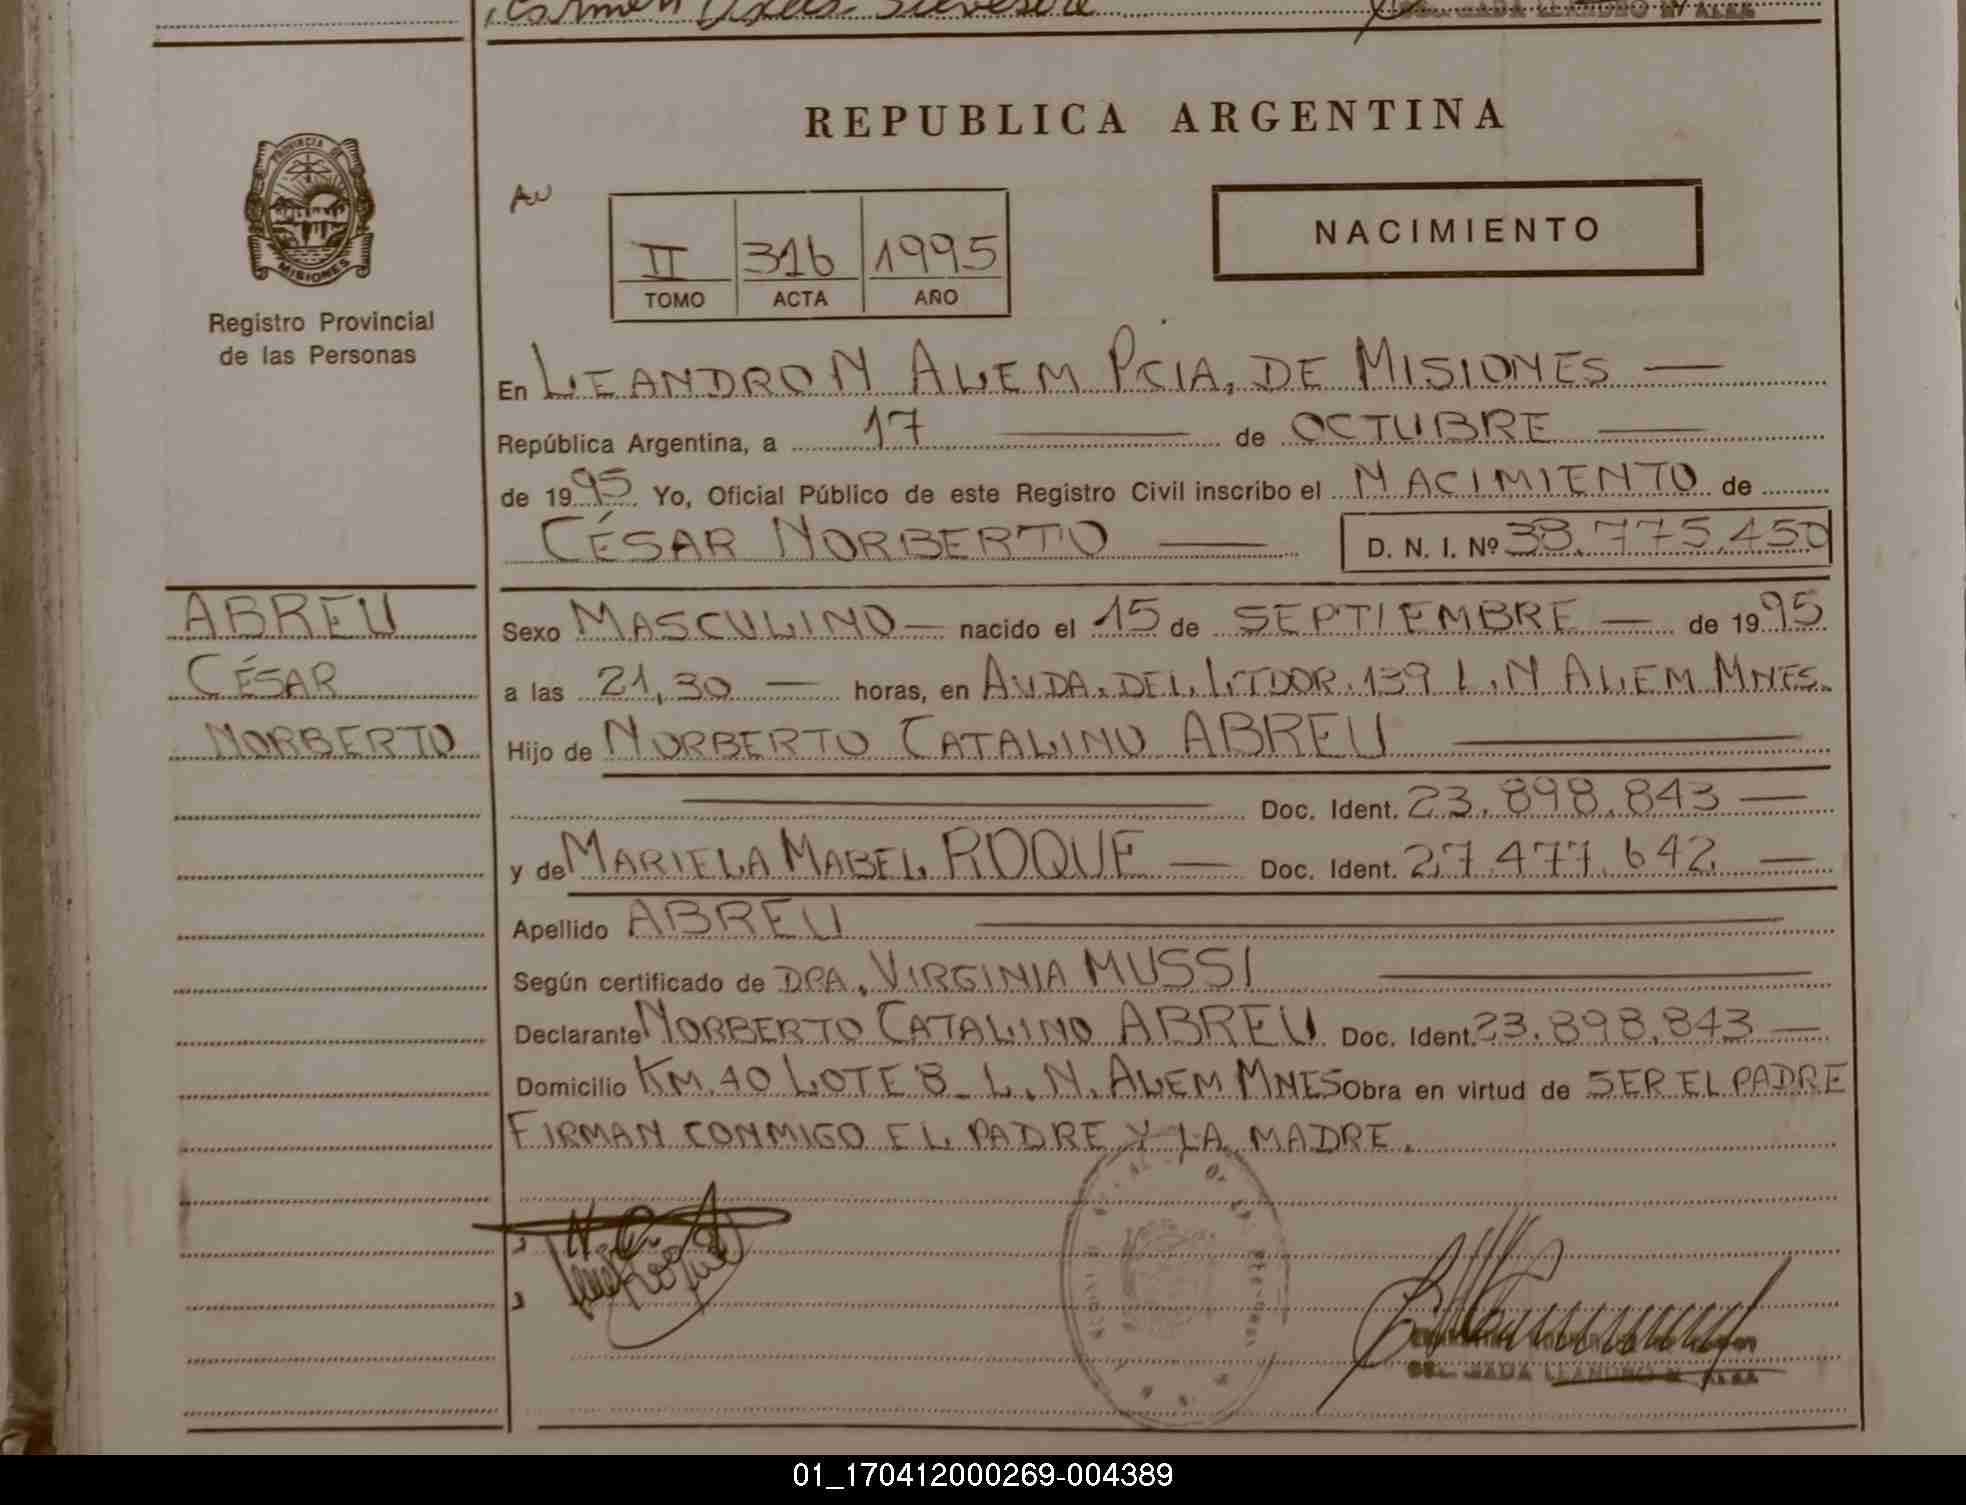 REPUBLICA ARGENTINA
PROVINCIA DE
MISIONES
Registro Provincial
de las Personas
II 316 1995
TOMO ACTA AÑO
NACIMIENTO
En LEANDRO N ALEM PCIA, DE MISIONES —
República Argentina, a 17 — de OCTUBRE —
de 1995 Yo, Oficial Público de este Registro Civil inscribo el NACIMIENTO de
CÉSAR NORBERTO — D. N. I. Nº 38.775.450
ABREU
CÉSAR
NORBERTO
Sexo MASCULINO — nacido el 15 de SEPTIEMBRE — de 1995
a las 21,30 — horas, en AVDA. DEL LTDOR. 139 L.N ALEM MNES.
Hijo de NORBERTO CATALINO ABREU —
— Doc. Ident. 23.898.843 —
y de MARIELA MABEL ROQUE — Doc. Ident. 27.477.642 —
Apellido ABREU —
Según certificado de DRA. VIRGINIA MUSSI —
Declarante NORBERTO CATALINO ABREU Doc. Ident. 23.898.843 —
Domicilio KM. 40 LOTE 8_ L. N. ALEM MNES Obra en virtud de SER EL PADRE
FIRMAN CONMIGO EL PADRE Y LA MADRE.
LEANDRO N. ALEM
01_170412000269-004389